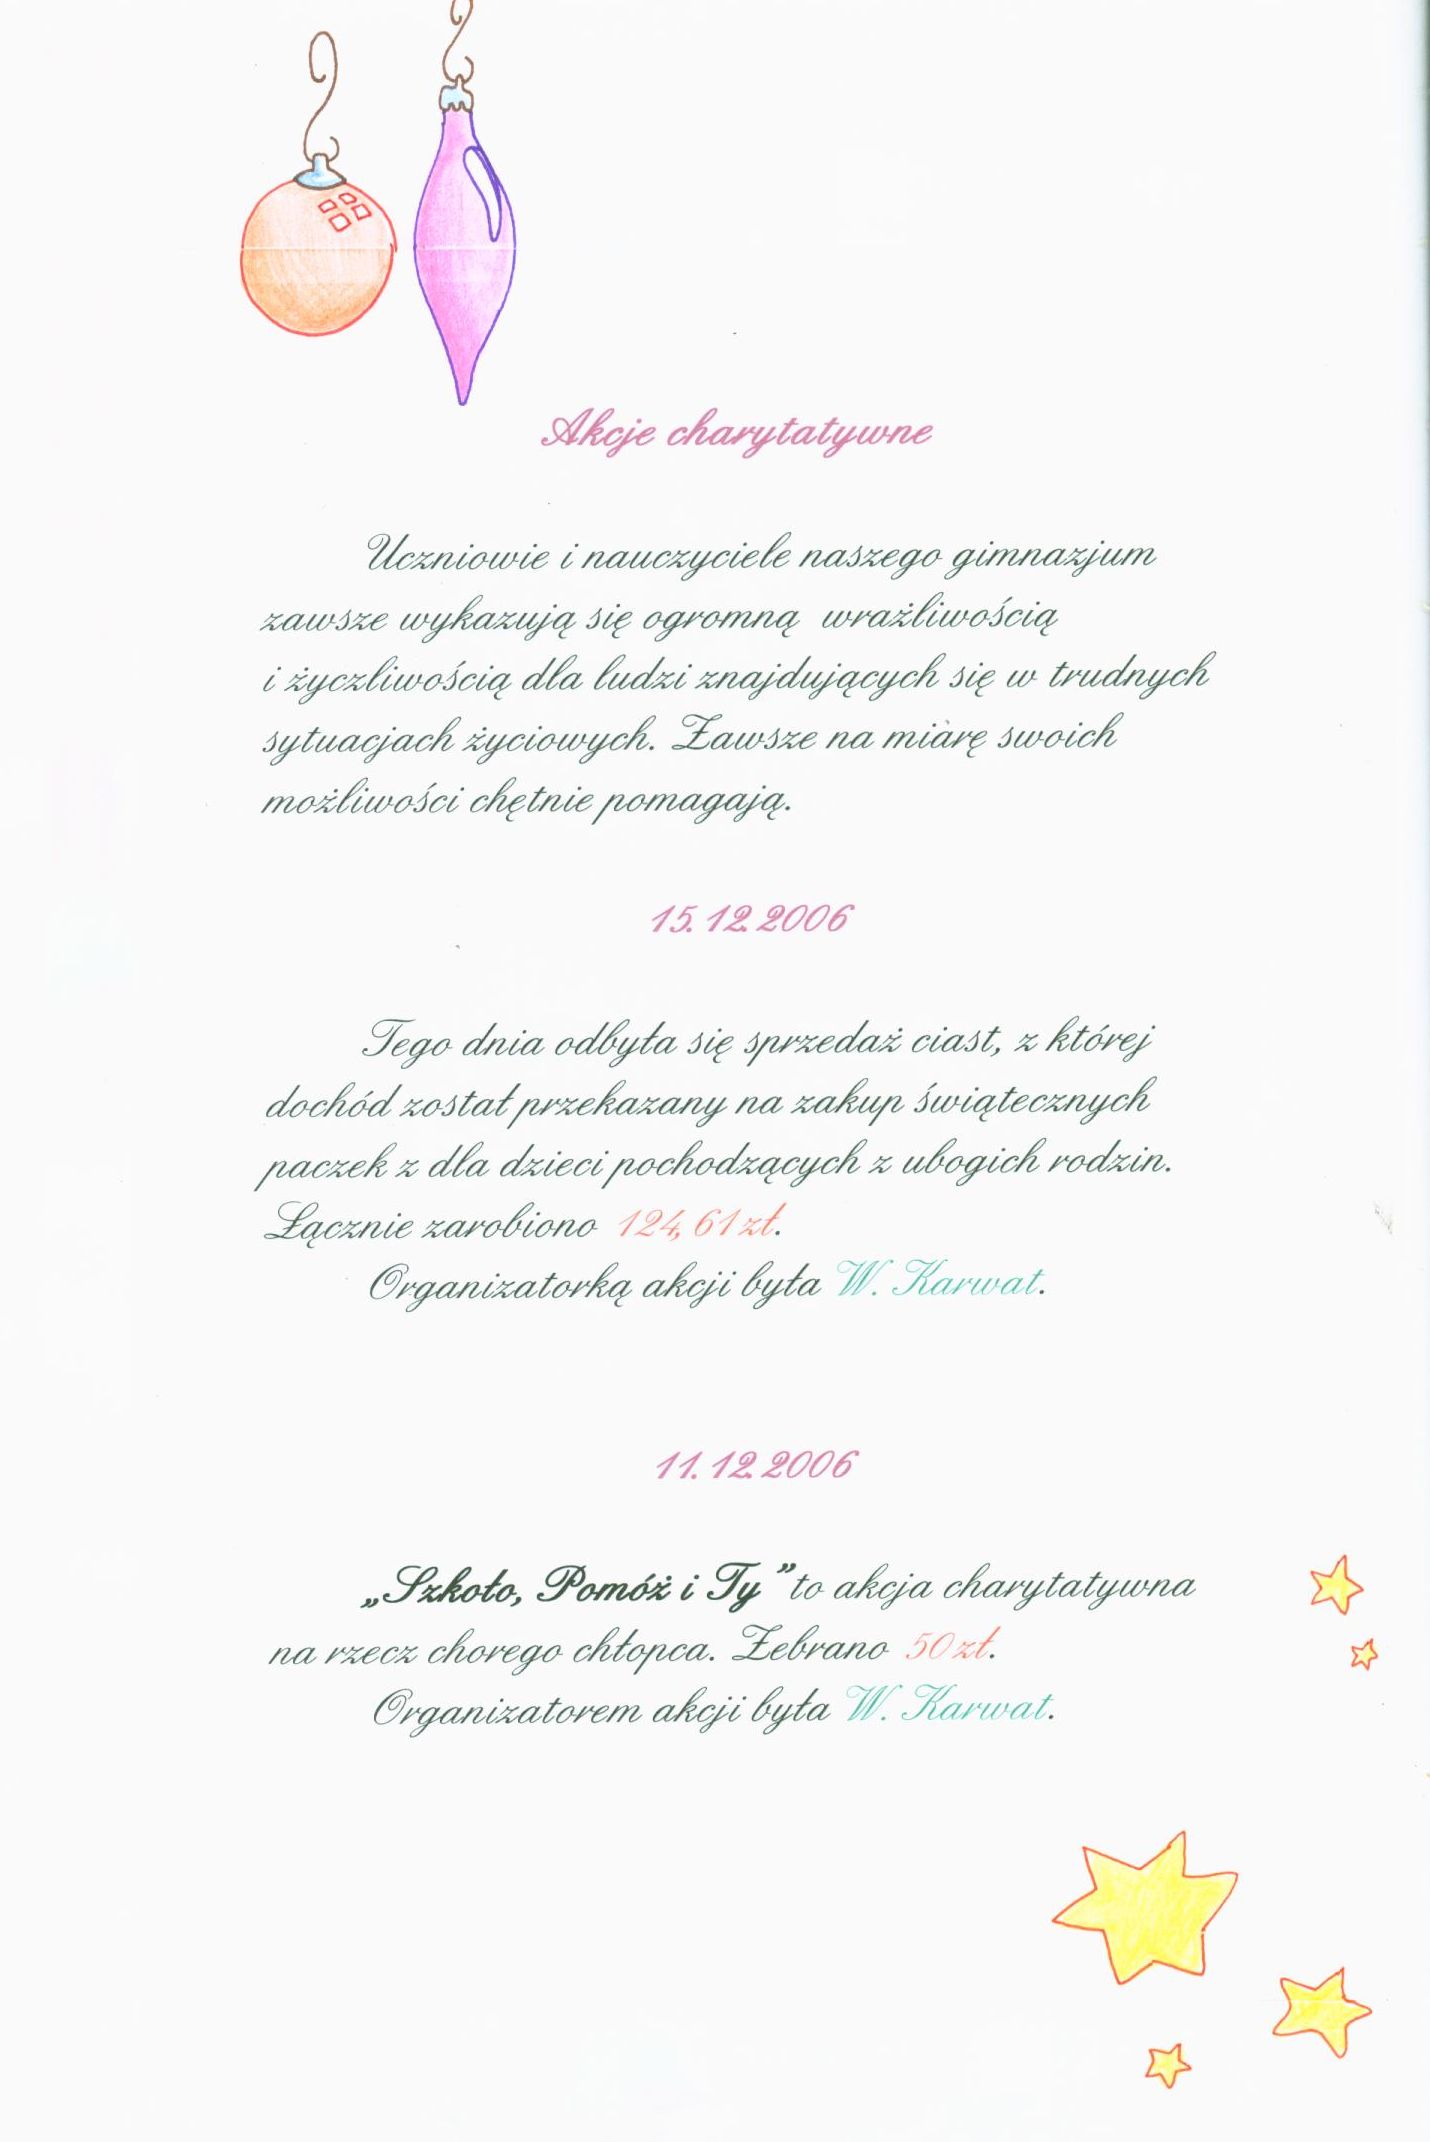 Akcje charytatywne
Uczniowie i nauczyciele naszego gimnazjum
zawsze wykazują się ogromną wrażliwością
i życzliwością dla ludzi znajdujących się w trudnych
sytuacjach życiowych. Zawsze na miarę swoich
możliwości chętnie pomagają.
15.12.2006
Tego dnia odbyła się sprzedaż ciast, z której
dochód został przekazany na zakup świątecznych
paczek z dla dzieci pochodzących z ubogich rodzin.
Łącznie zarobiono 124,61 zł.
Organizatorką akcji była W. Karwat.
11.12.2006
„Szkoło, Pomóż i Ty” to akcja charytatywna
na rzecz chorego chłopca. Zebrano 50 zł.
Organizatorem akcji była W. Karwat.